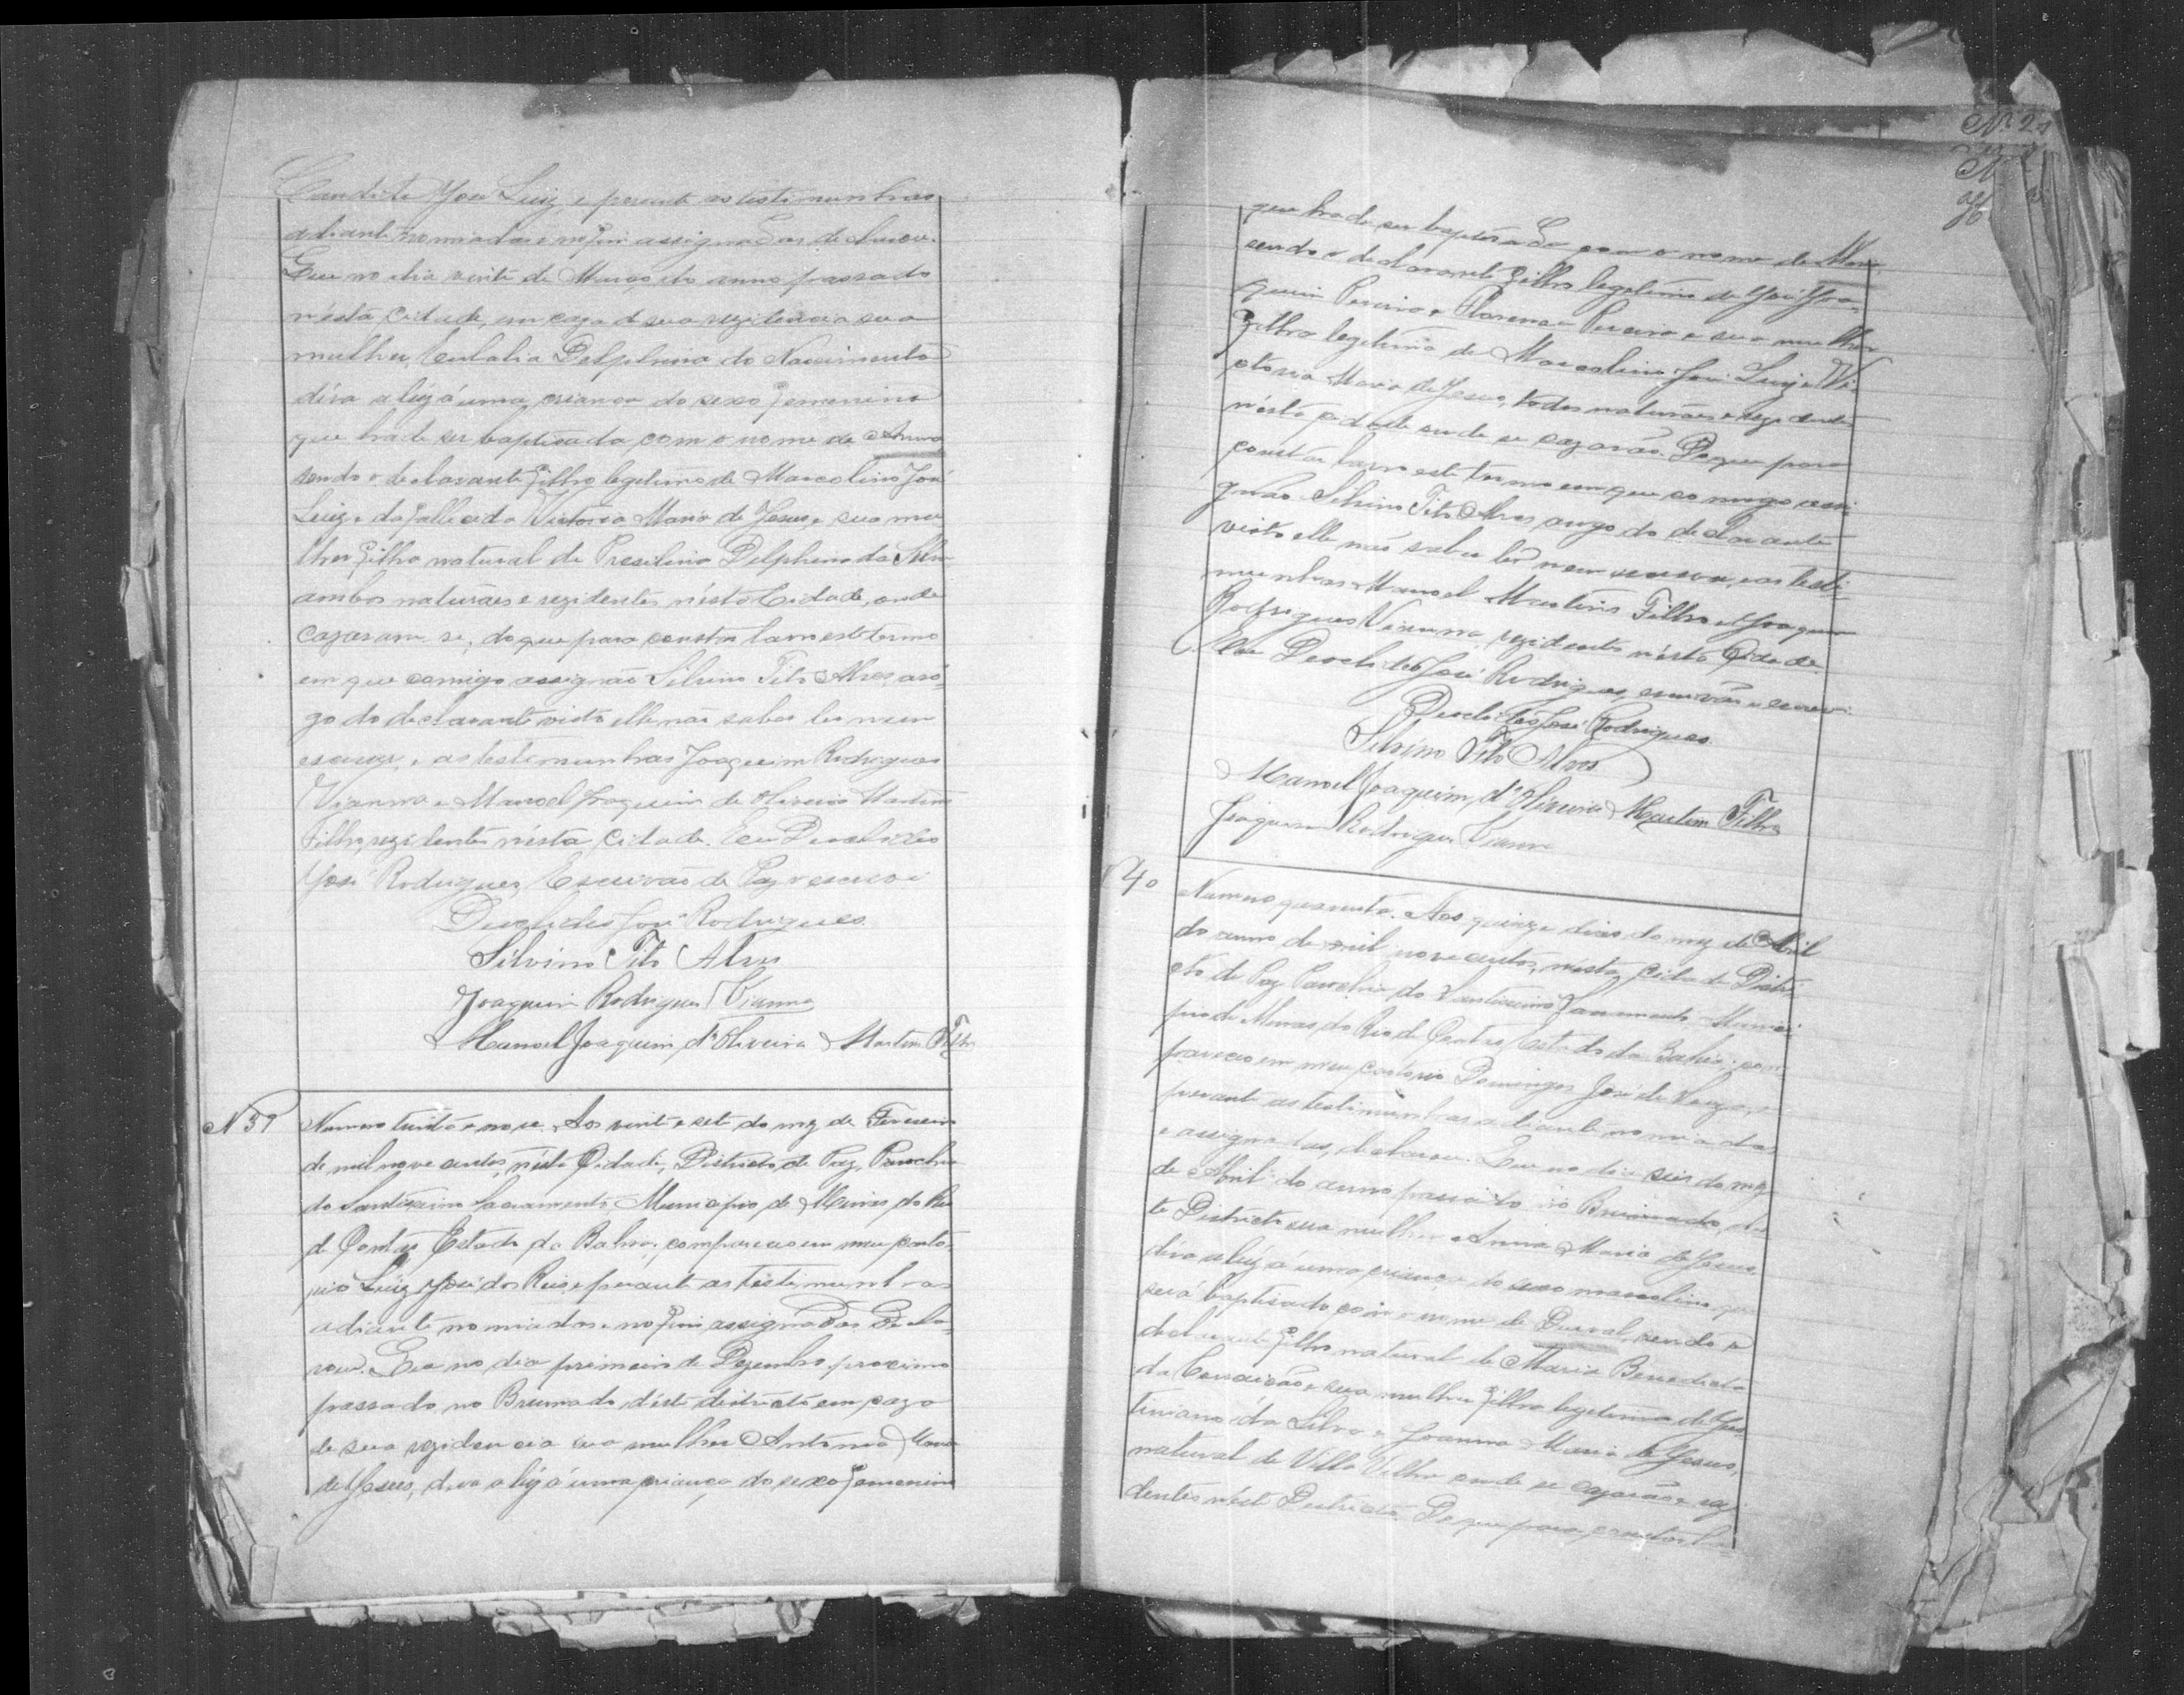 Candido José Luiz, e perante as testimunhas
adiante nomiadas e no fim assignadas declarou.
Que no dia vinte de Março do anno passado
nésta Cidade, em caza de sua rezidencia sua
mulher, Eulalia Delphina do Nascimento
déra a lúz á uma criança do sexo femenino
que hade ser baptisada com o nome de Anna
sendo o declarante filho legitimo de Marcolino José
Luiz e da fallecida Victoria Maria de Jesus, e sua mu
lher filha natural de Presilina Delphina da Silva
ambos naturáes e rezidentes nésta Cidade, onde
cazaram se, do que para constar lavro este termo
em que comigo assignão Silvino Tito Alves, aro-
go do declarante visto elle não saber ler nem
escrever, e as testimunhas Joaquim Rodrigues
Vianna e Manoel Joaquim de Oliveira Martins
Filho, rezidentes nésta Cidade. Eu Deoclides
José Rodrigues, Escrivão de Paz o escrevi
Deoclides José Rodrigues.
Silvino Tito Alves
Joaquim Rodrigues Vianna
Manoel Joaquim d'Oliveira Martins Filho
N 39
Numero trinta e nove. Aos vinte e sete do mez de Fevereiro
de mil nove centos, nésta Cidade, Districto de Paz, Parochia
do Santissimo Sacramento, Municipio de Minas do Rio
de Contas, Estado da Bahia; compareceu em meu carto-
rio Luiz José dos Reis, e perante as testimunhas
adiante nomiadas e no fim assignadas decla-
rou. Que no dia primeiro de Dezembro proximo
passado no Brumado déste districto em caza
de sua rezidencia sua mulher Antonia Maria
de Jesus, dera a lúz á uma criança do sexo femenino
que hade ser baptisada com o nome de
sendo o declarante filho legitimo de José Joa-
quim Pereira e Pereira e sua mulher
filha legitima de Marcolino José Luiz e Vi-
ctoria Maria de Jesus, todos naturáes e rezidentes
nésta cidade onde se cazarão. Do que para
constar lavro este termo em que comigo assi
gnão Silvino Tito Alves, arogo do declarante
visto elle não saber ler nem escrever, e as testi-
munhas Manoel Martins Filho e Joaquim
Rodrigues Vianna, rezidentes nésta Cidade.
Eu Deoclides José Rodrigues, escrivão o escrevi.
Deoclides José Rodrigues.
Silvino Tito Alves
Manoel Joaquim d'Oliveira Martins Filho
Joaquim Rodrigues Vianna
40
Numero quarenta. Aos quinze dias do mez de Abril
do anno de mil nove centos, nésta Cidade Distri
cto de Paz Parochia do Santissimo Sacramento Munici
pio de Minas do Rio de Contas, Estado da Bahia; com-
pareceo em meu cartorio Domingos José de Souza, e
perante as testimunhas adiante nomiadas
e assignadas, declarou. Que no dia seis do mez
de Abril do anno passado no Brumado, des
te Districto sua mulher Anna Maria de Jesus,
déra a lúz á uma criança do sexo masculino, que
será baptisado com o nome de Durval, sendo o
declarante filho natural de Maria Benedicta
da Conceição e sua mulher filha legitima de
da Silva e Joanna Maria de Jesus,
natural de Villa Velha onde se cazarão e rezi
dentes neste Districto. Do que para constar